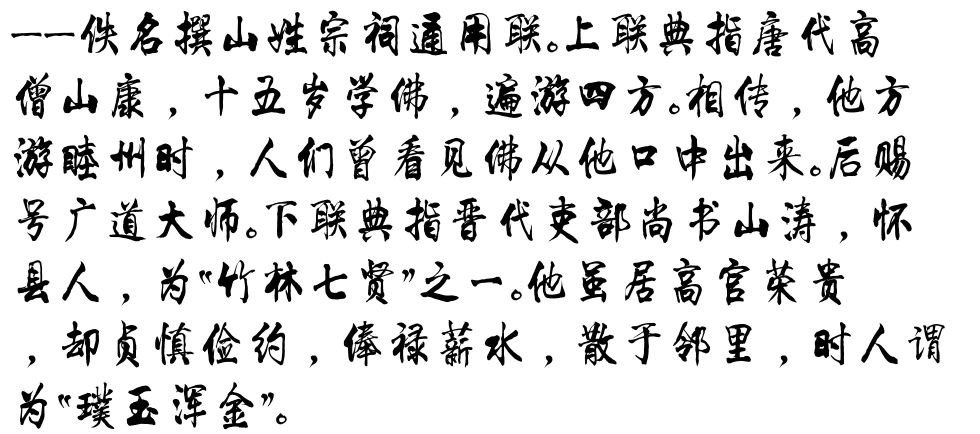 ——佚名撰山姓宗祠通用联。上联典指唐代高
僧山康，十五岁学佛，遍游四方。相传，他方
游睦州时，人们曾看见佛从他口中出来。后赐
号广道大师。下联典指晋代吏部尚书山涛，怀
县人，为“竹林七贤”之一。他虽居高官荣贵
，却贞慎俭约，俸禄薪水，散于邻里，时人谓
为“璞玉浑金”。